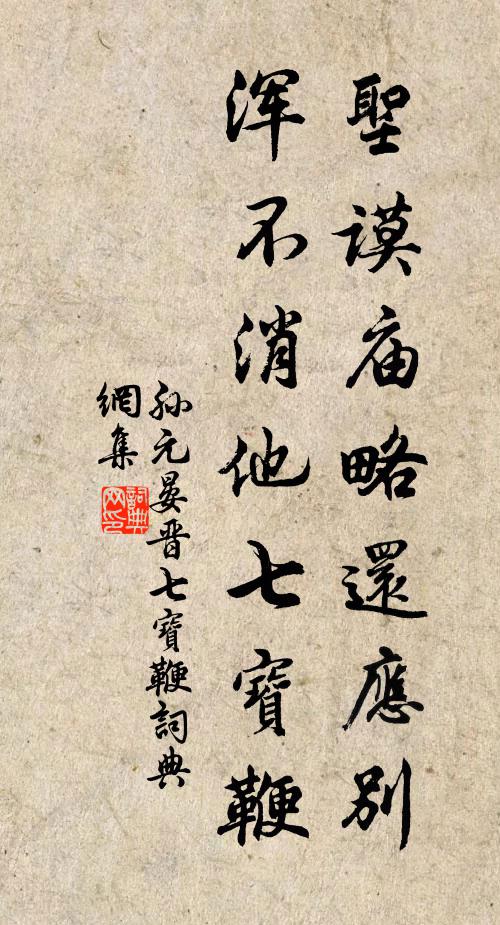 聖謨庙略還應別
渾不消他七寶鞭
孙元晏晋七寶鞭詞典
網集
詞典
网印